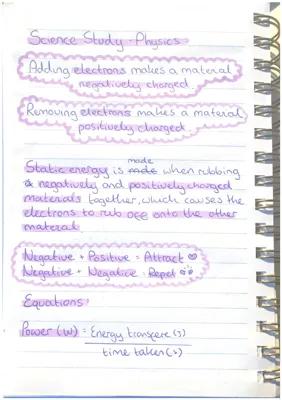 Science Study - Physics
Adding electrons makes a material
negatively charged
Removing electrons makes a material
positively charged
made
Static energy is made when rubbing
a negatively and positively charged
materials together, which causes the
electrons to rub off onto the other
material
Negative + Positive = Attract
Negative + Negative = Repel
Equations:
Power (W) = Energy transfere (J)
time taken (s)